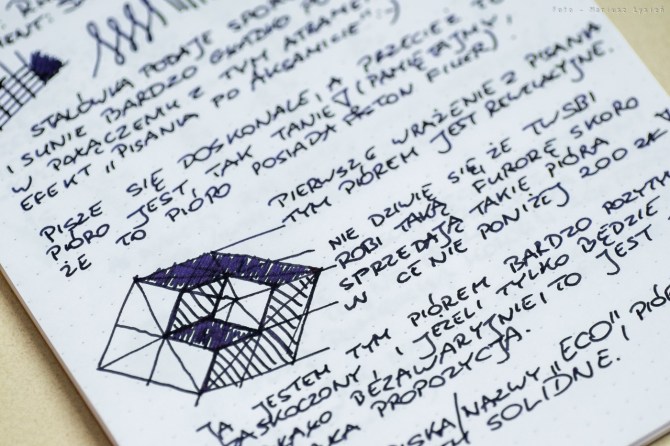 Foto - Mariusz Lysień
STALÓWKA PODAJE SPORO
I SUNIE BARDZO GŁADKO PO
W POŁĄCZENIU Z TYM ATRAME
EFEKT „PISANIA PO AKSAMICIE"
PISZE SIĘ DOSKONALE, A PRZECIEŻ TO
PIÓRO JEST TAK TANIE! (PAMIĘTAJMY,
ŻE TO PIÓRO POSIADA PISTON FILLER)
PIERWSZE WRAŻENIE Z PISANIA
TYM PIÓREM JEST REWELACYJNE.
NIE DZIWIĘ SIĘ, ŻE TWSBI
ROBI TAKĄ FURORĘ SKORO
SPRZEDAJĄ TAKIE PIÓRA
W CENIE PONIŻEJ 200 ZŁ
JA JESTEM TYM PIÓREM BARDZO POZYT
ZASKOCZONY, I JEŻELI TYLKO BĘDZIE
BEZAWARYJNE, TO JEST
PROPOZYCJA.
NAZWY „ECO"
SOLIDNE.